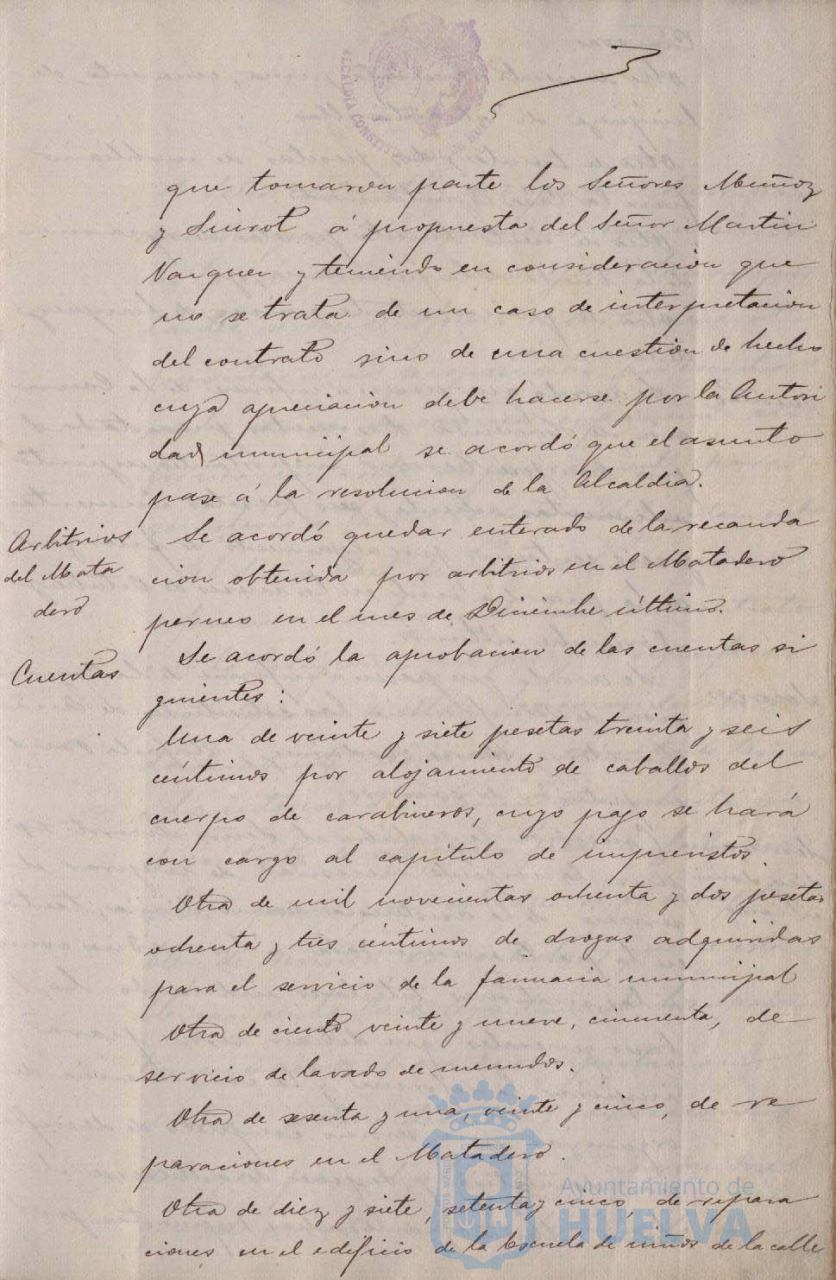 que tomaron parte los Señores Muñoz
y Sinrot á propuesta del Señor Martin
Vazquez y teniendo en consideracion que
no se trata de un caso de interpretacion
del contrato sino de una cuestion de hecho
cuya apreciacion debe hacerse por la Autori
dad municipal se acordó que el asunto
pase á la resolucion de la Alcaldia.
Arbitrios
del Mata
dero
Se acordó quedar enterado de la recauda
cion obtenida por arbitrios en el Matadero
perneo en el mes de Diciembre último.
Cuentas
Se acordó la aprobacion de las cuentas si
guientes:
Una de veinte y siete pesetas treinta y seis
céntimos por alojamiento de caballos del
cuerpo de carabineros, cuyo pago se hará
con cargo al capítulo de imprevistos.
Otra de mil novecientas ochenta y dos pesetas
ochenta y tres céntimos de drogas adquiridas
para el servicio de la farmacia municipal
Otra de ciento veinte y nueve, cincuenta, de
servicio de lavado de menudos.
Otra de sesenta y una, veinte y cinco, de re
paraciones en el Matadero.
Otra de diez y siete, setenta y cinco, de repara
ciones en el edificio de la Escuela de niños de la calle
Ayuntamiento de
HUELVA